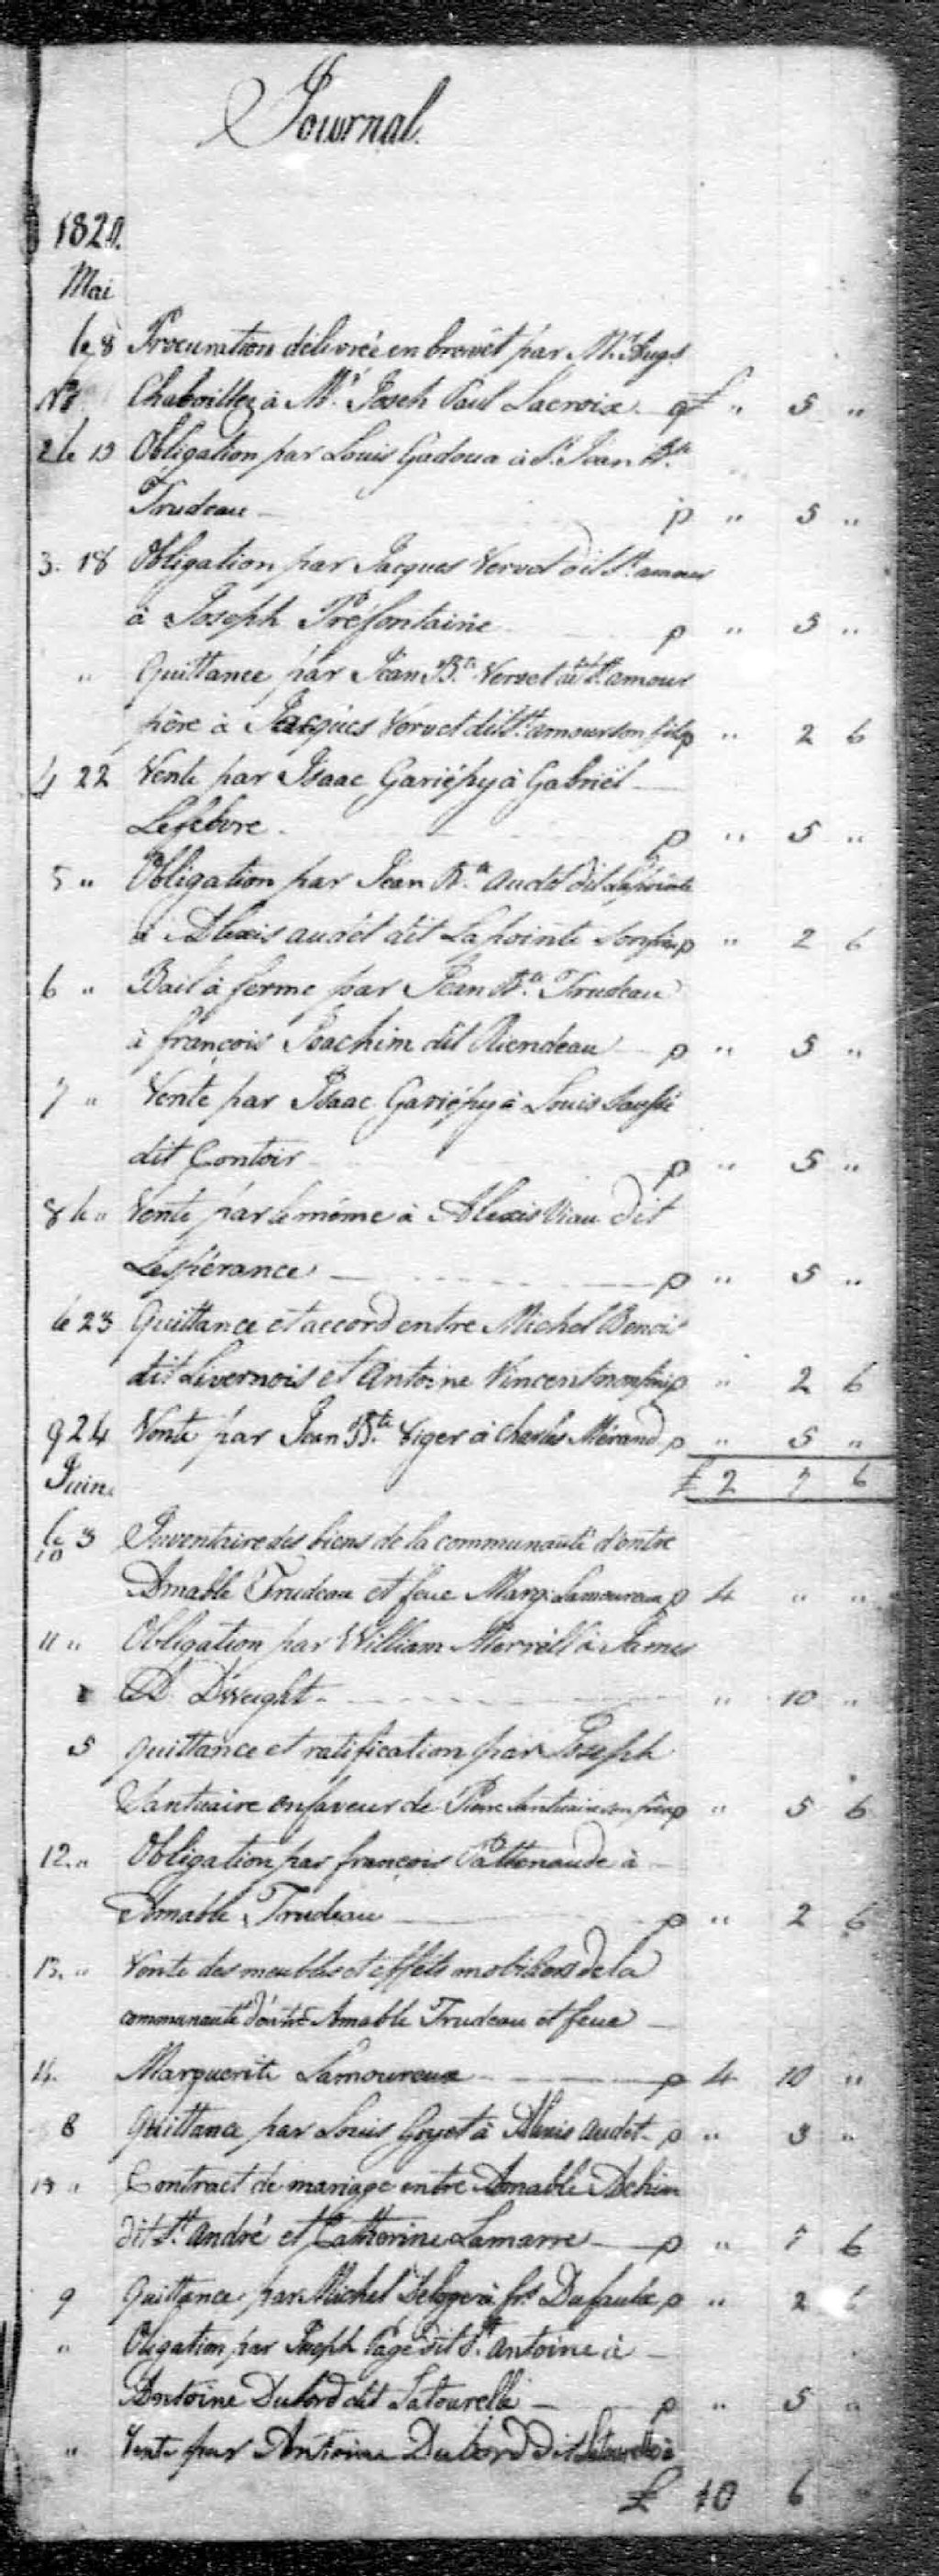 Journal.
1820.
Mai
le 8 Procuration délivrée en brevêt par Mr. Augs.
No. 1 Chaboillez à Mr. Joseh Paul Lacroix £ " 5 "
2 le 13 Obligation par Louis Gadoua à Sr. Jean Bte.
Trudeau — p " 5 "
3. 18 Obligation par Jacques Vervet dit St. amour
à Joseph Préfontaine p " 5 "
" Quittance par Jean Bte. Vervet dit St. amour
père à Jacques Vervet dit St. amour son fils p " 2 6
4 22 Vente par Isaac Gariépy à Gabriël —
Lefebvre. p " 5 "
5 " Obligation par Jean Bte. audet dit Lapointe
à Alexis audet dit Lapointe son p " 2 6
6 " Bail à ferme par Jean Bte. Trudeau
à françois Joachim dit Riendeau — p " 5 "
7 " Vente par Isaac Gariépy à Louis
dit Contoir p " 5 "
8 le " Vente par le même à Alexis Viau dit
Lespérance — p " 5 "
le 23 Quittance et accord entre Michel Benoit
dit Livernois et Antoine Vincent p " 2 6
9 24 Vente par Jean Bte. Viger à Charles Mérand p " 5 "
Juin £ 2 7 6
le 3 Inventaire des biens de la communauté d'entre
10 Amable Trudeau et feue Marg. Lamoureux p 4 " "
11 " Obligation par William Morrell à James
A. Dwight — " 10 "
5 quittance et ratification par Joseph
Vantuaire en faveur de Pierre Vantuaire son frère p " 5 6
12. " Obligation par françois Pattenaude à —
Amable Trudeau — p " 2 6
13. " Vente des meubles et effets mobiliers de la
communauté d'entre Amable Trudeau et feue —
14. Marguerite Lamoureux — p 4 10 "
8 Quittance par Louis Goyet à Alexis audet — p " 3 "
" Contract de mariage entre Amable Achim
dit St. André et Catherine Lamarre — p " 7 6
9 Quittance par Michel à frs. Dufaulx p " 2 6
" Oligation par Joseph Pagé dit St. Antoine à —
Antoine Dubord dit Latourelle — p " 5 "
" Vente par Antoine Dubord dit Latourelle à
£ 10 6